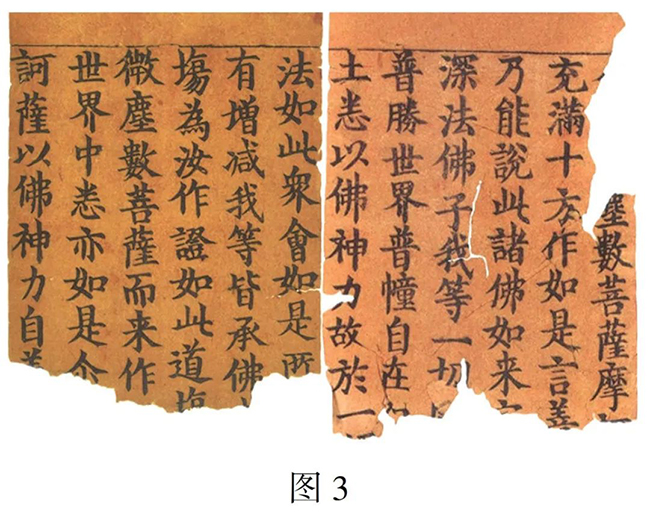 塵數菩薩摩
充滿十方作如是言善
乃能說此諸佛如来
深法佛子我等一切
普勝世界普幢自在
土悉以佛神力故於一
法如此衆會如是所
有增减我等皆承佛
塲為汝作證如此道塲
微塵數菩薩而来作
世界中悉亦如是
訶薩以佛神力自
图 3